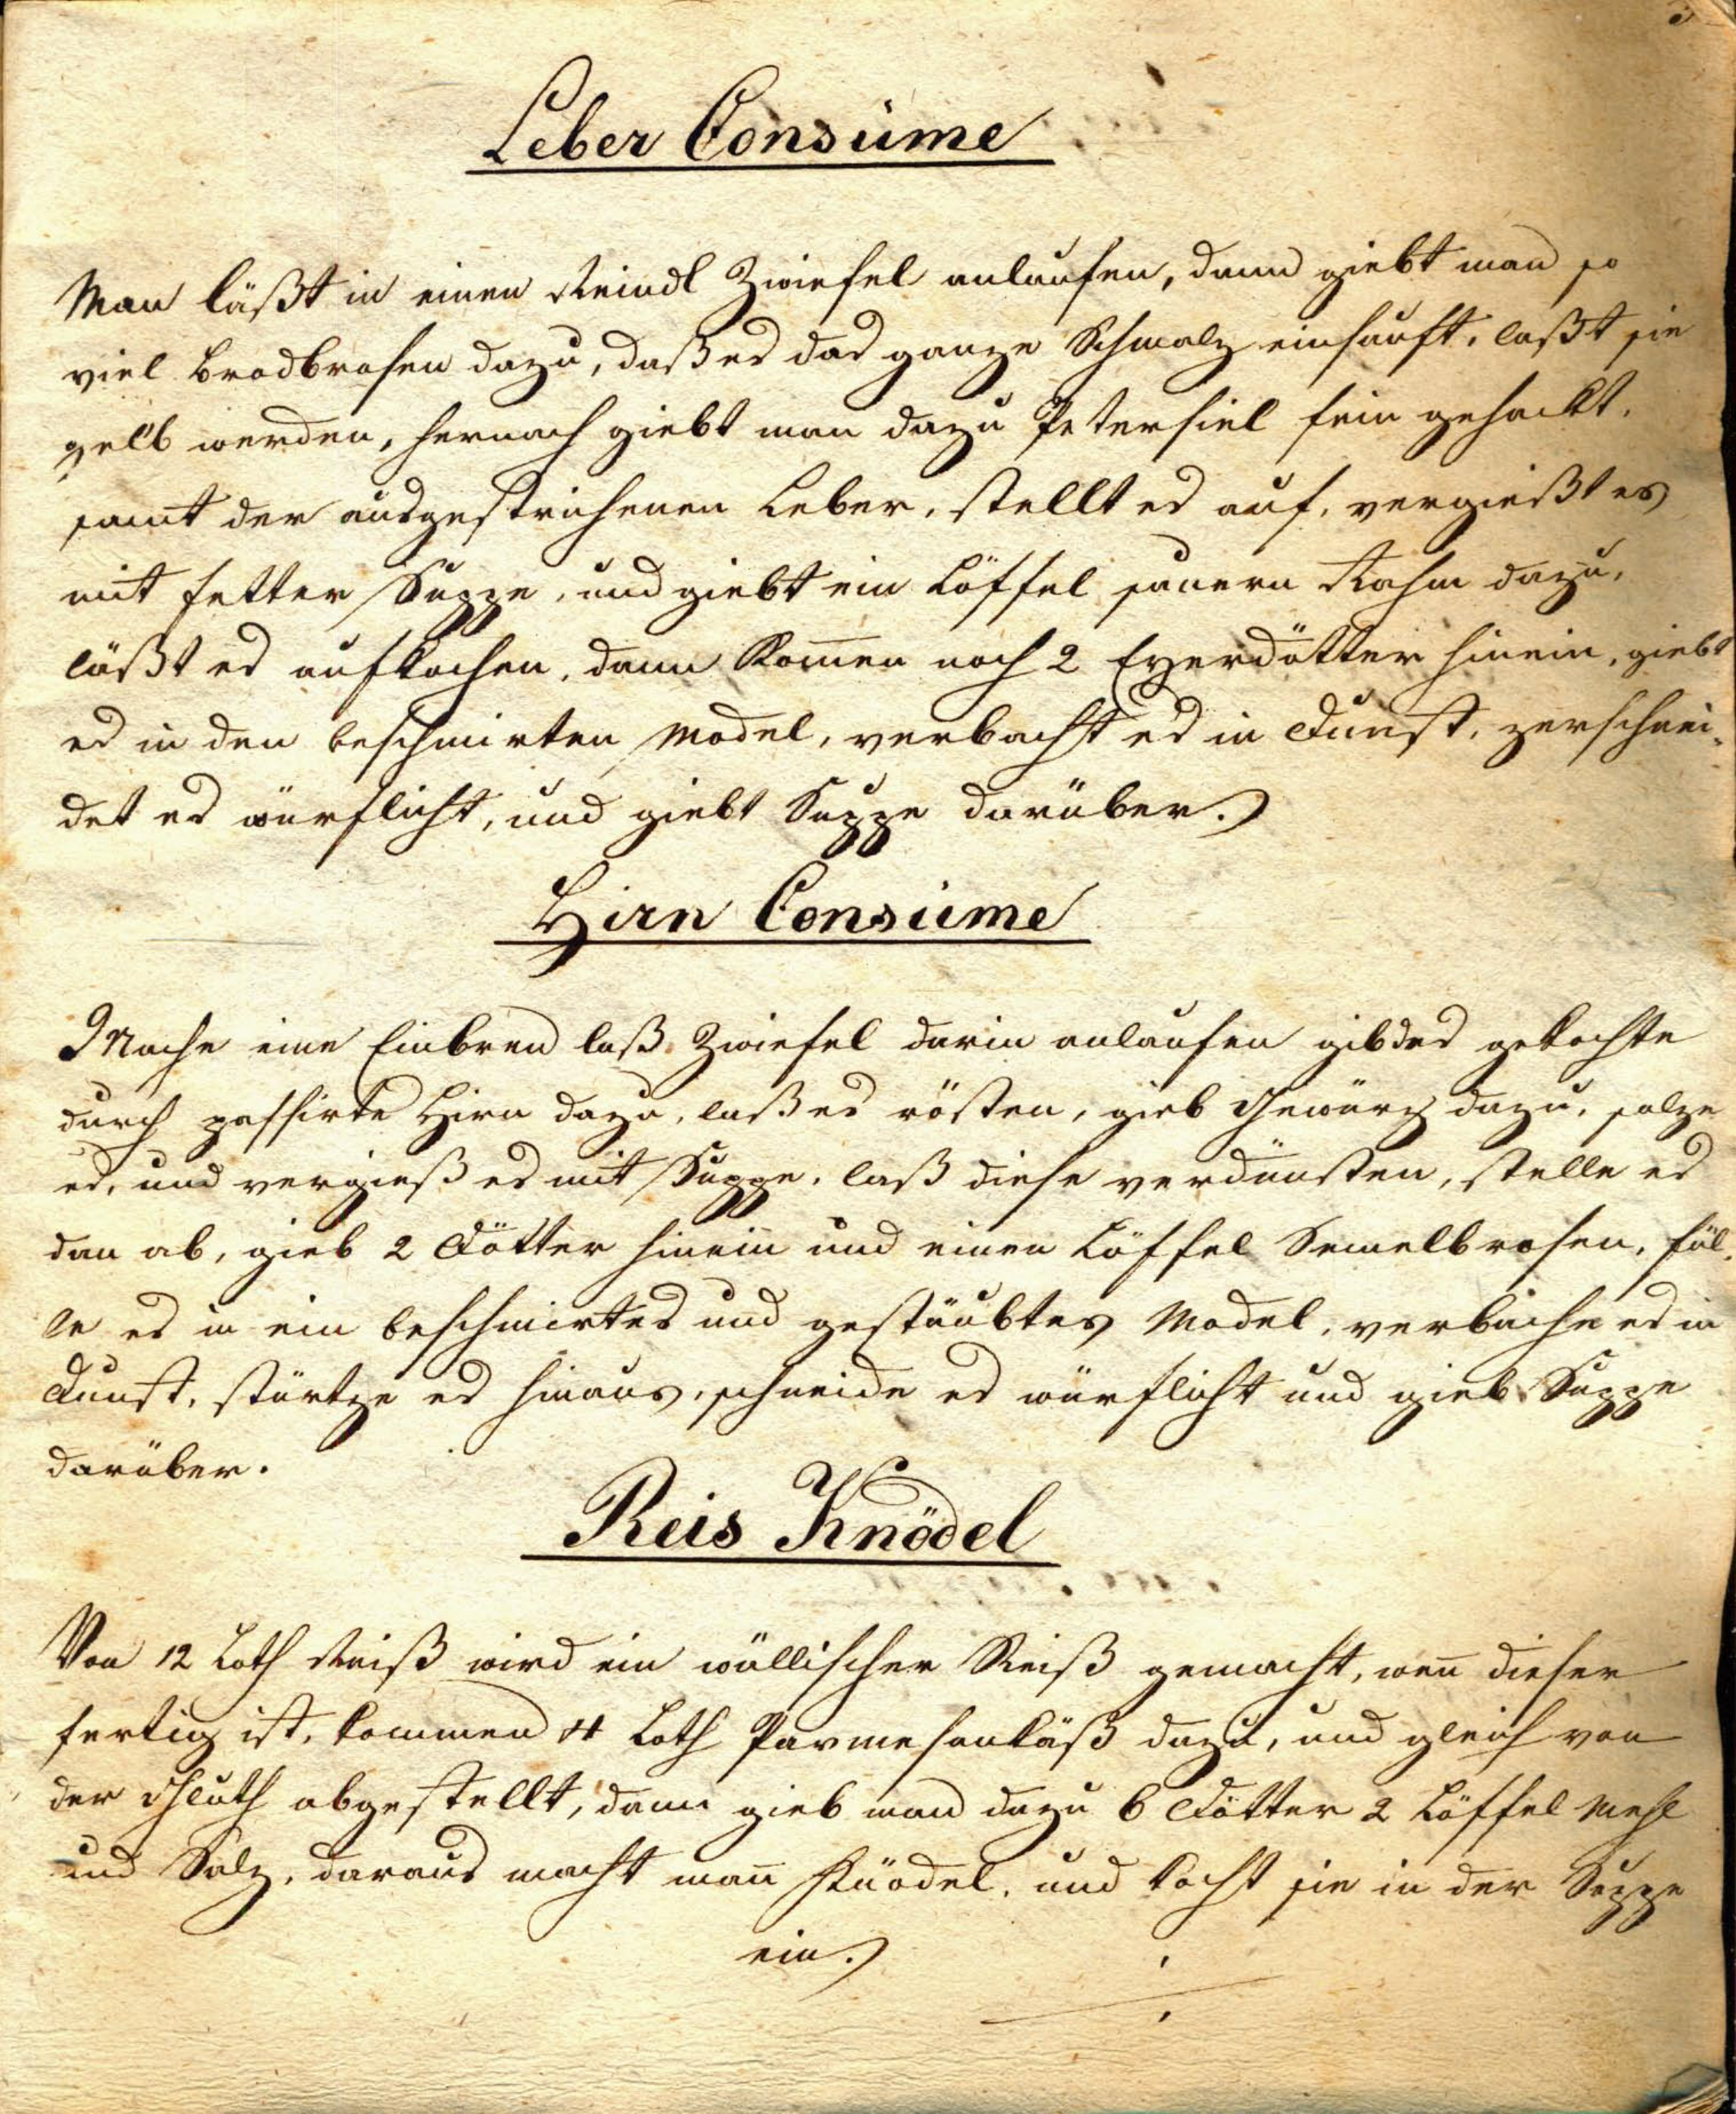 Leber Consüme
Man läßt in einen Reindl Zwiefel anlaufen, dann giebt man so
viel Brodbrosen dazu, daß es das ganze Schmalz einsauft, laßt sie
gelb werden, hernach giebt man dazu Petersiel fein gehackt,
samt der ausgestrichenen Leber, stellt es auf, vergießt es
mit fetter Suppe, und giebt ein Löffel sauern Rahm dazu,
läßt es aufkochen, dann Kom̅en noch 2 Eyerdötter hinein, giebt
es in den beschmirten Model, verbacht es in Dunst, zerschnei-
det es würflicht, und giebt Suppe darüber.
Hirn Consüme
Mache eine Einbren laß Zwiefel darin anlaufen gib das gekochte
durch passirte Hirn dazu, laß es rösten, gieb Gewürz dazu, salze
es, und vergieß es mit Suppe, laß diese verdünsten, stelle es
dan ab, gieb 2 Dötter hinein und einen Löffel Semelbrosen, fül-
le es in ein beschmirtes und gestäubtes Model, verbache es in
Dunst, stürtze es hinaus, schneide es würflicht und gieb Suppe
darüber.
Reis Knödel
Von 12 Loth Reiß wird ein wällischer Reiß gemacht, wen̅ dieser
fertig ist, kommen 4 Loth Parmesankäß dazu, und gleich von
der Gluth abgestellt, dann gieb man dazu 6 Dötter 2 Löffel Mehl
und Salz, daraus macht man̅ Knödel, und kocht sie in der Suppe
ein.